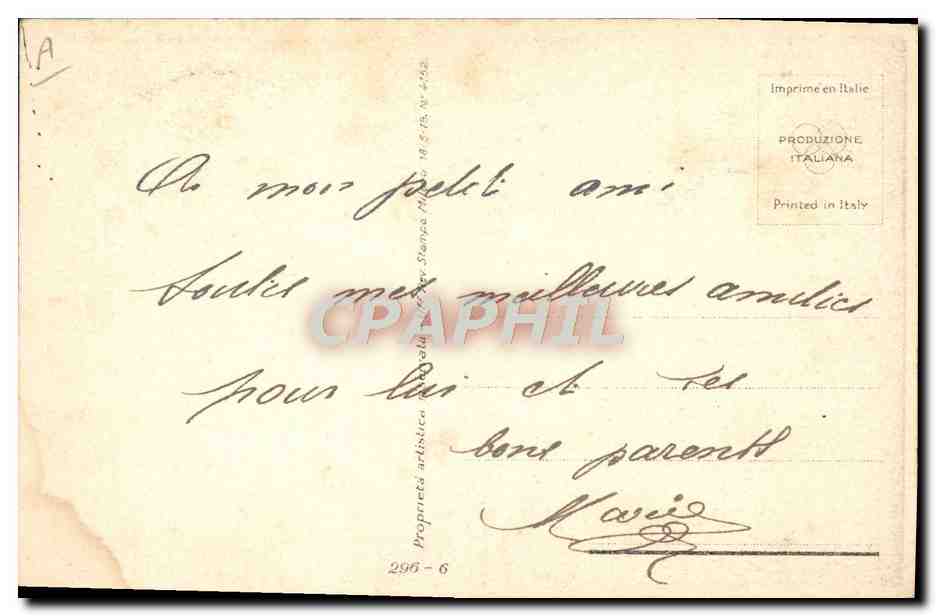 A
Imprimé en Italie
PRODUZIONE
ITALIANA
Printed in Italy
A mon petit ami
toutes mes meilleures amitiés
pour lui et ses
bons parents
Marie
CPAPHIL
Proprietà artistica Stampa 18-5-19. N° 4152
296 - 6